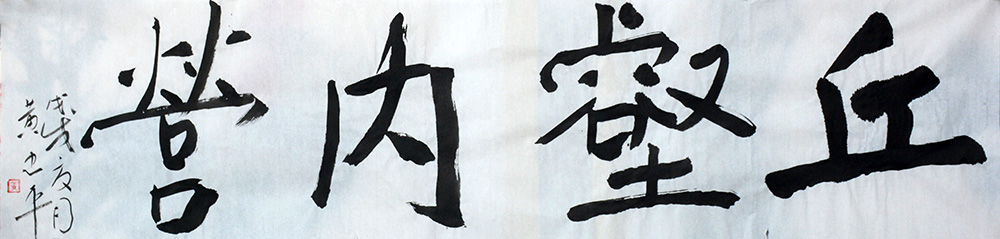 丘壑内营
戊戌夏月
黄忠平